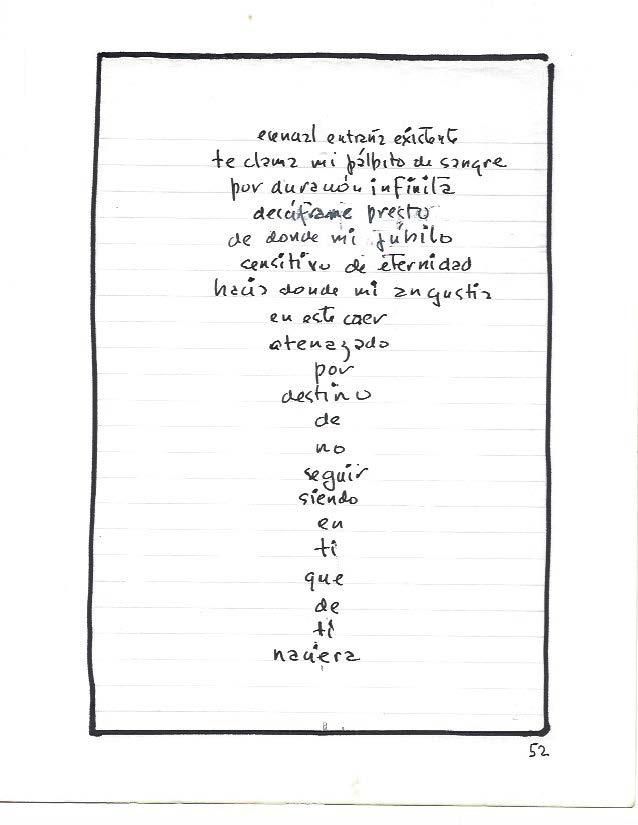 esencial entraña existente
te clama mi pálpito de sangre
por duración infinita
descíframe presto
de donde mi júbilo
sensitivo de eternidad
hacia donde mi angustia
en este caer
atenazado
por
destino
de
no
seguir
siendo
en
ti
que
de
ti
naciera
52